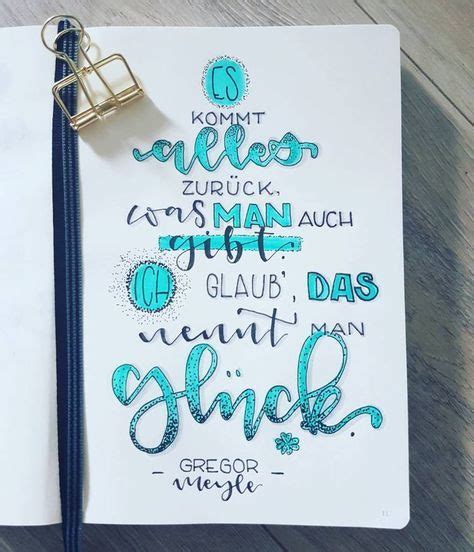 ES
KOMMT
alles
ZURÜCK,
was MAN AUCH
gibt.
ICH GLAUB', DAS
nennt MAN
Glück.
- GREGOR
Meyle -